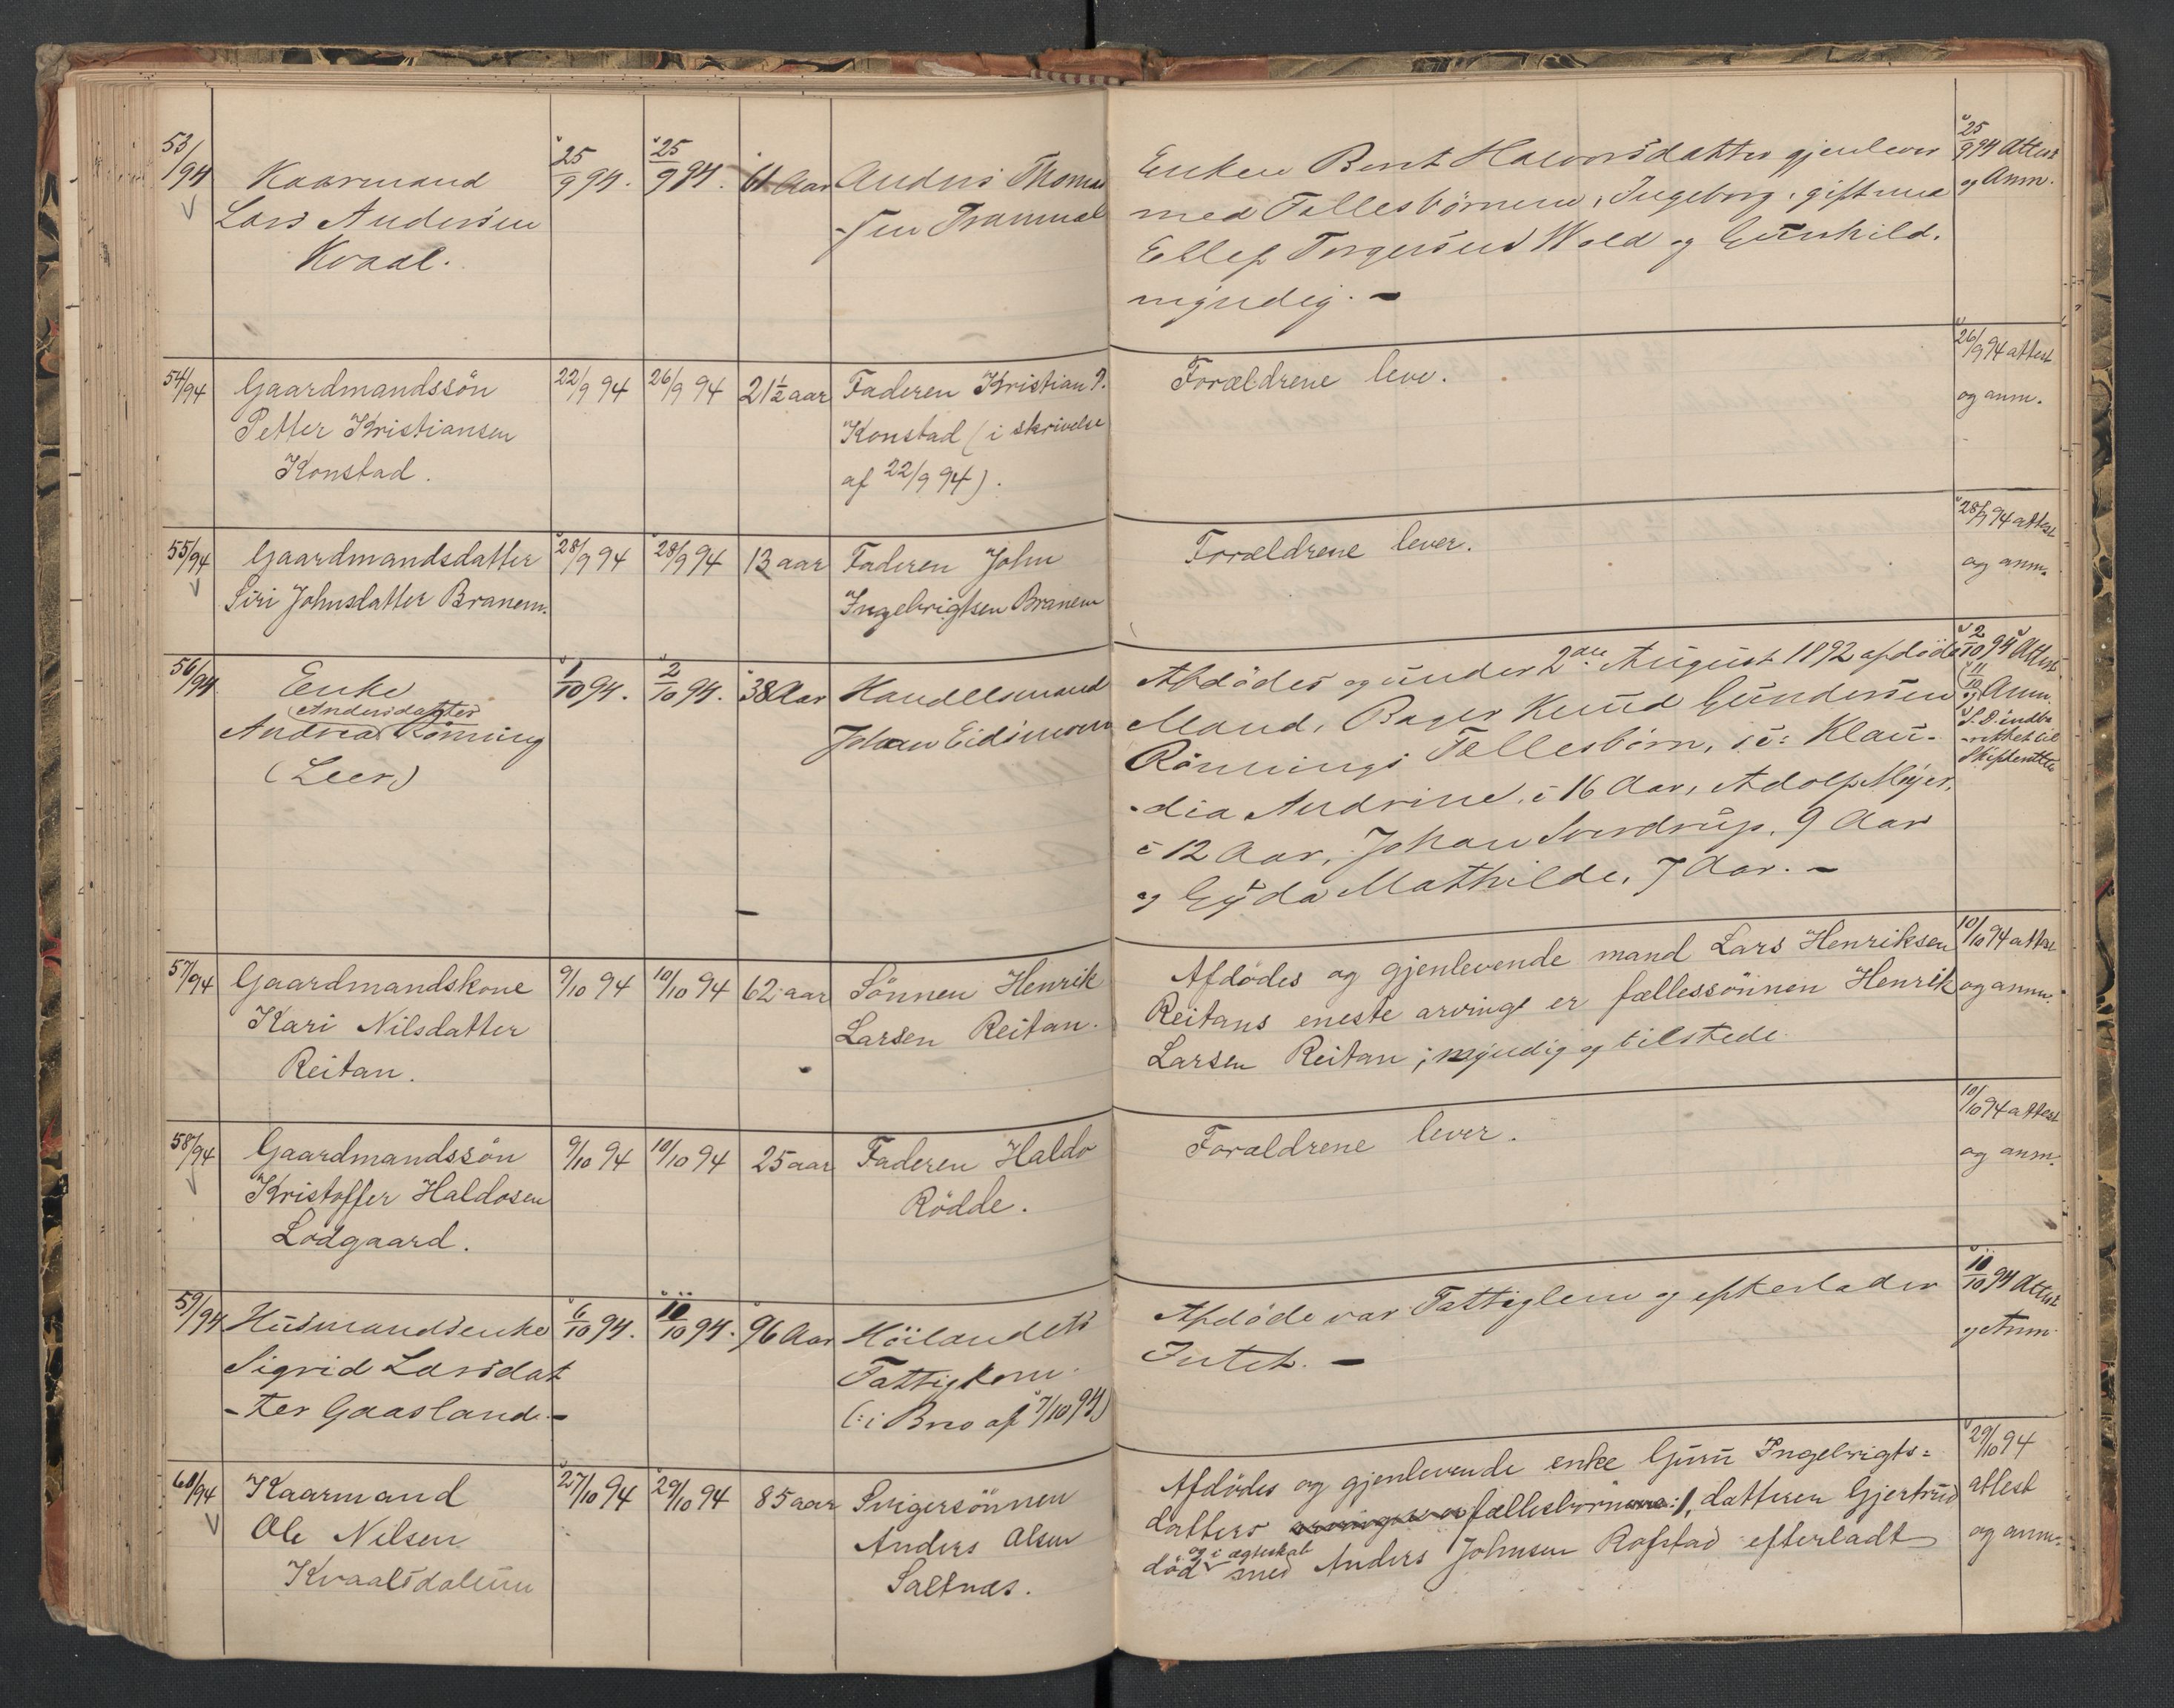 53/94
Kaarmand
Lars Andersen
Kvaal.
25/9 94.
25/9 94.
61 Aar
Anders Thomas
-sen Tranmæl
Enken Berit Halvorsdatter gjenlever
med Fællesbørnene, Ingeborg, gift med
Ellef Torgersen Wold og Gunhild,
myndig. -
25/9 94 Attest
og Anm.
54/94
Gaardmandssön
Petter Kristiansen
Konstad.
22/9 94
26/9 94
21½ aar
Faderen Kristian P.
Konstad (i skrivelse
af 22/9 94).
Forældrene leve.
26/9 94 attest
og anm.
55/94
Gaardmandsdatter
Siri Johnsdatter Branem.
28/9 94
28/9 94
13 aar
Faderen John
Ingebrigtsen Branem
Forældrene lever.
28/9 94 attest
og anm.
56/94
Enke
Andersdatter
Andrea Rönning
(Leer)
1/10 94.
2/10 94.
38 Aar
Handelsmand
Johan Eidsmoen
Afdødes og under 2den August 1892 afdøde
Mand, Bager Knud Gundersen
Rønnings Fællesbørn, er: Klau-
-dia Andrine, i 16 Aar, Adolf Meyer,
i 12 Aar, Johan Sverdrup, 9 Aar
og Gyda Mathilde, 7 Aar. -
2/10 94 Attest
11/10 og Anm.
S.D. indbe
-rettet til
Skifteretten
57/94
Gaardmandskone
Kari Nilsdatter
Reitan.
9/10 94
10/10 94
62 aar
Sönnen Henrik
Larsen Reitan.
Afdødes og gjenlevende mand Lars Henriksen
Reitans eneste arving er fællessönnen Henrik
Larsen Reitan; myndig og tilstede.
10/10 94 attest
og anm.
58/94
Gaardmandssön
Kristoffer Haldosen
Lodgaard.
9/10 94
10/10 94
25 aar
Faderen Haldo
Rödde.
Forældrene lever.
10/10 94 attest
og anm.
59/94
Husmandsenke
Sigrid Larsdat
-ter Gaasland. -
6/10 94.
10/10 94.
96 Aar
Höilandets
Fattigkom.
(: i Brev af 7/10 94)
Afdøde var Fattiglem og efterlader
Intet. -
10/10 94 Attest
og Anm.
60/94
Kaarmand
Ole Nilsen
Kvaalsdalen
27/10 94
29/10 94
85 aar
Svigersönnen
Anders Olsen
Saltnæs.
Afdødes og gjenlevende enke Guru Ingebrigts=
datters fællesbörn: 1, datteren Gjertrud
og i ægteskab
död med Anders Johnsen Rofstad efterladt
29/10 94
attest
og anm.